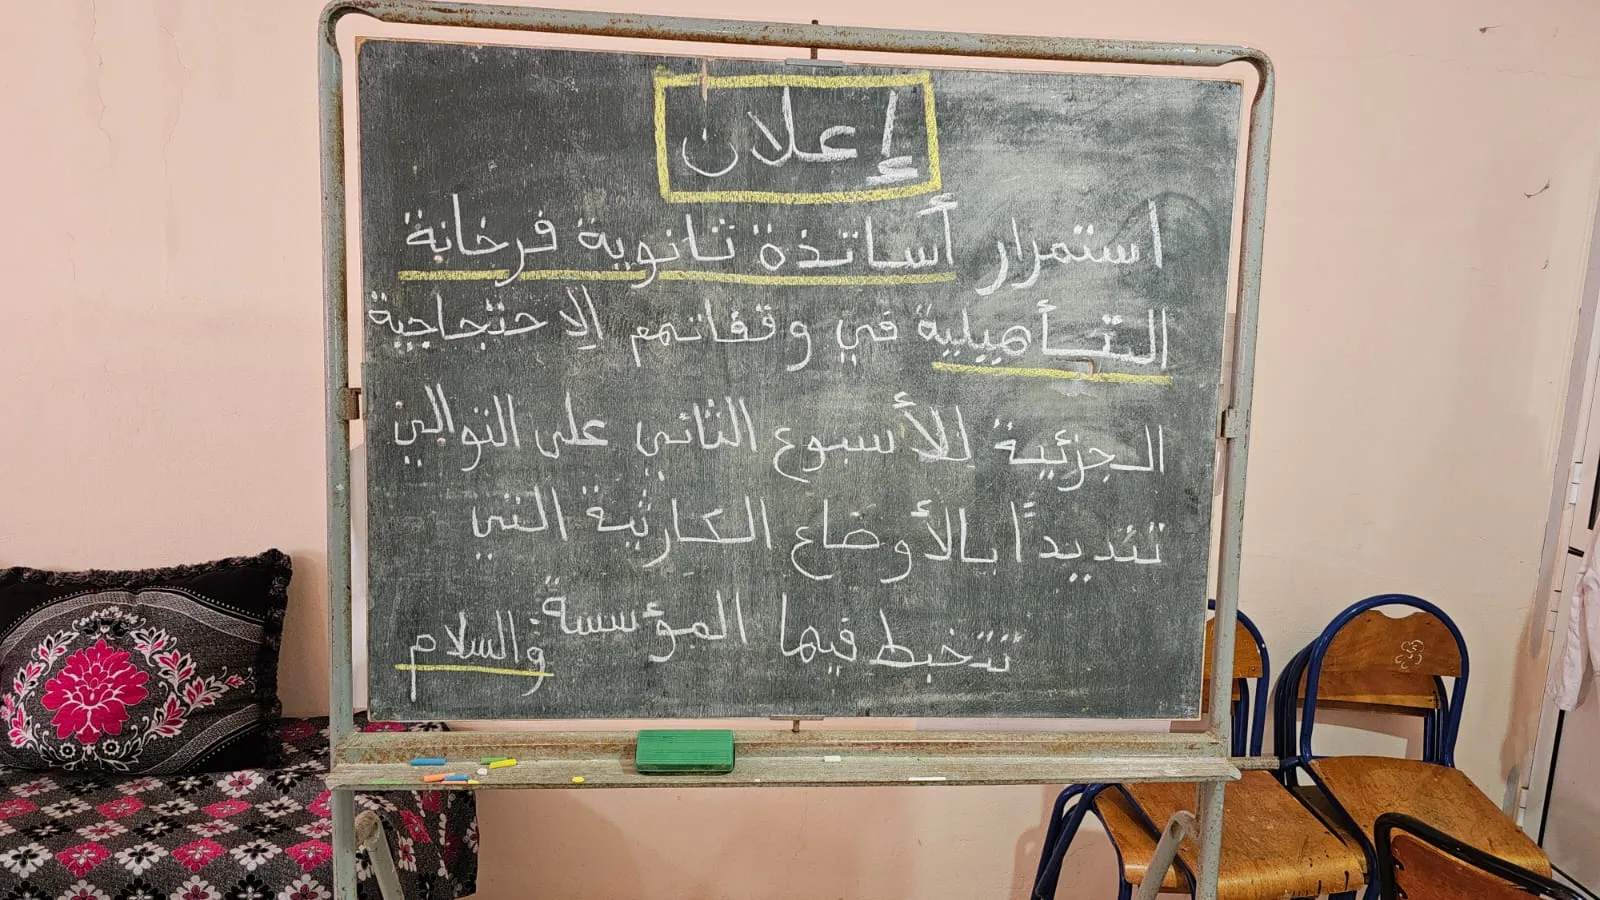 إعلان
استمرار أساتذة ثانوية فرخانة
التأهيلية في وقفاتهم الاحتجاجية
الجزئية للأسبوع الثاني على التوالي
تنديدًا بالأوضاع الكارثية التي
تتخبط فيها المؤسسة والسلام